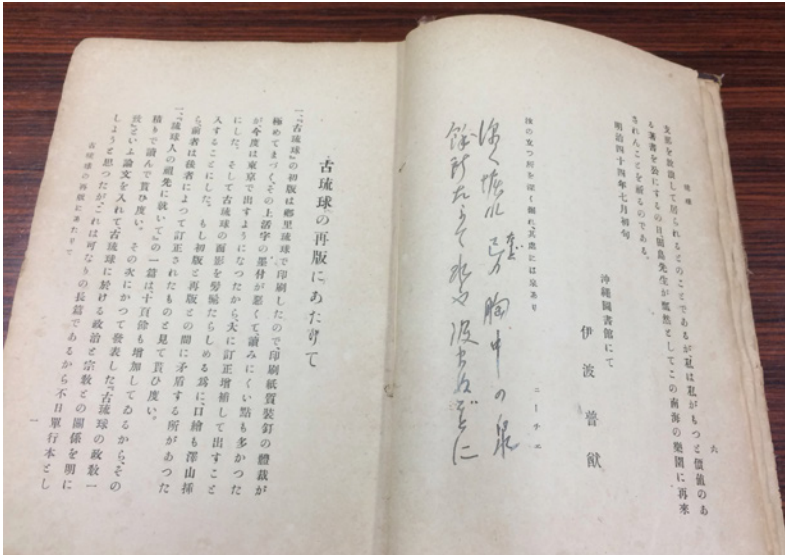 琉球
六
支那を放浪して居られるとのことであるが、私は私がもつと價値のあ
る著書を公にするの日、田島先生が飄然としてこの南海の樂園に再來
されんことを祈るのである。
明治四十四年七月初旬
沖繩圖書館にて
伊波普猷
汝の立つ所を深く掘れ、其處には泉あり
ニーチエ
深く掘れ己の胸中の泉
餘所たよて水や汲まぬごとに
古琉球の再版にあたりて
一、『古琉球』の初版は鄕里琉球で印刷したので、印刷紙質裝釘の體裁が
極めてまづく、その上活字の墨付が惡くて讀みにくい點も多かつた
が、今度は東京で出すようになつたから、大に訂正增補して出すこと
にした。そして古琉球の面影を髣髴たらしめる爲に、口繪も澤山插
入することにした。もし初版と再版との間に矛盾する所があつた
ら、前者は後者によつて訂正されたものと見て貰ひ度い。
一、『琉球人の祖先に就いて』の一篇は、十頁餘も增加してゐるから、その
積りで讀んで貰ひ度い。その次にかつて發表した『古琉球の政敎一
致』といふ論文を入れて、古琉球に於ける政治と宗敎との關係を明に
しようと思つたが、これは可なりの長篇であるから不日單行本とし
古琉球の再版にあたりて
一